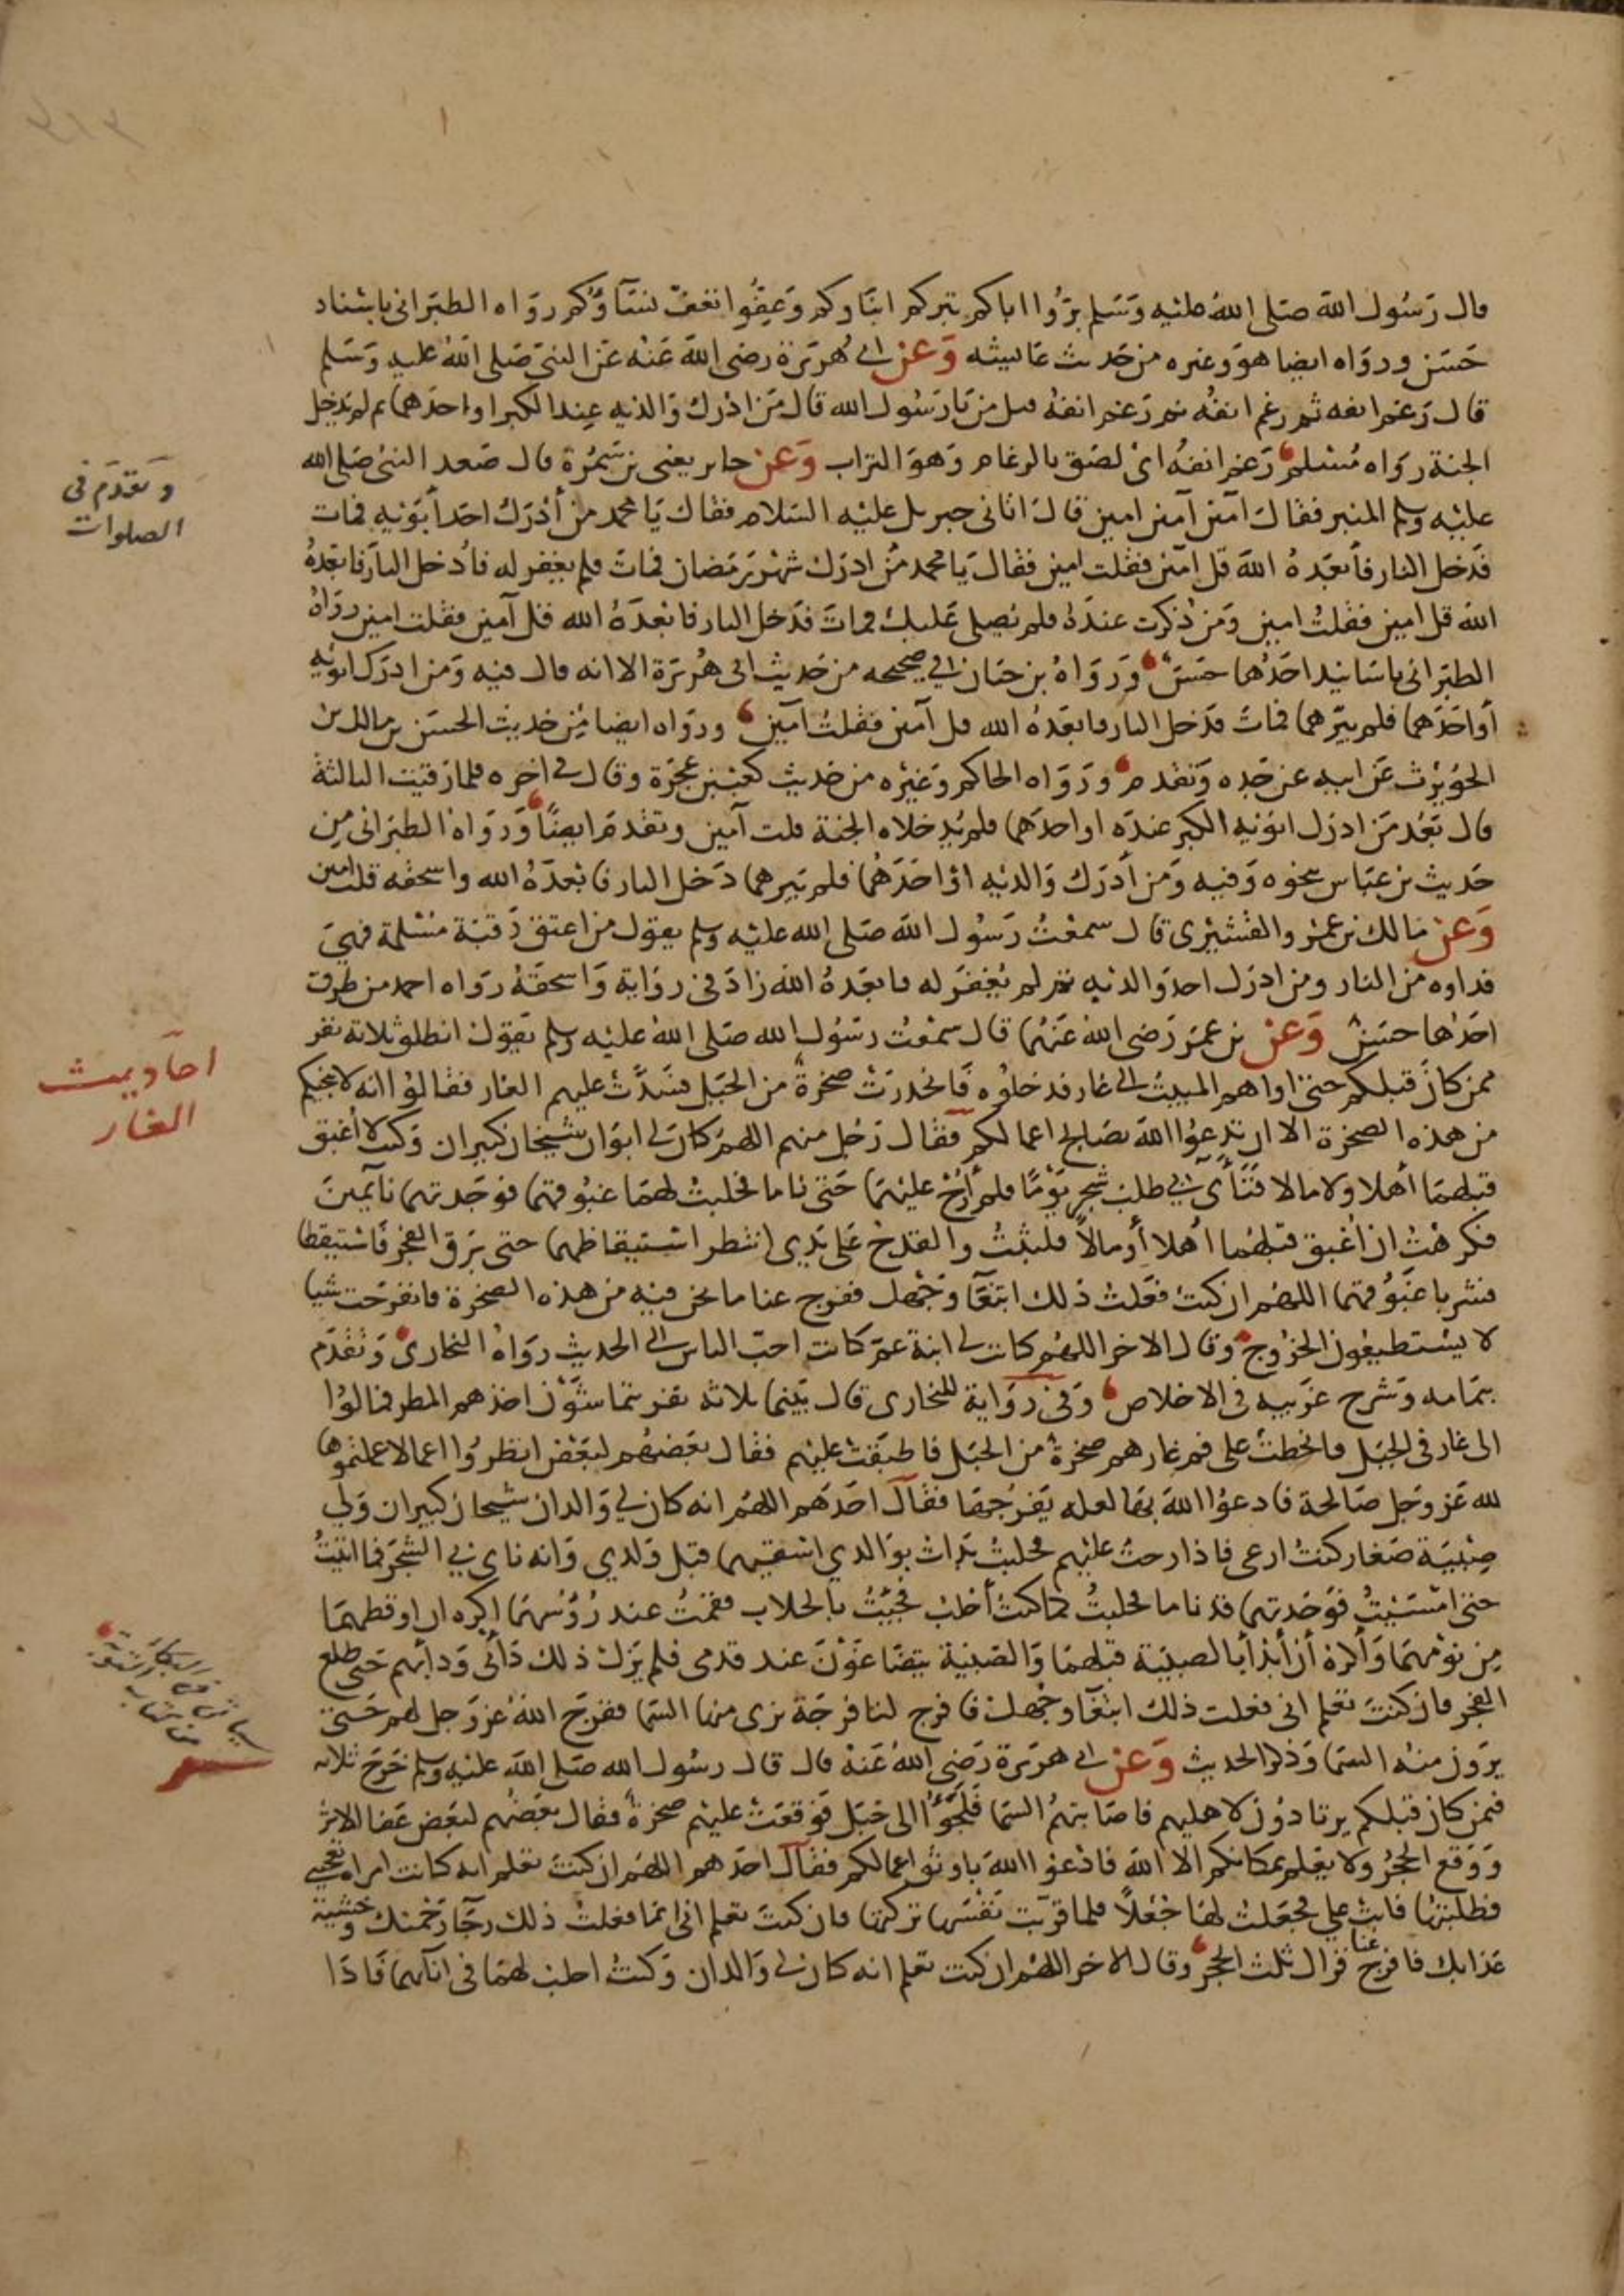 قال رسول الله صلى الله عليه وسلم بروا اباكم تبركم ابناوكم وعفوا تعف نساوكم رواه الطبراني باسناد
حسن ورواه ايضا هو وغيره من حديث عايشه وعن ابي هريرة رضي الله عنه عن النبي صلى الله عليه وسلم
قال رغم انفه ثم رغم انفه ثم رغم انفه قيل من يا رسول الله قال من ادرك والديه عند الكبر او احدهما ثم لم يدخل
الجنة رواه مسلم رغم انفه اي لصق بالرغام وهو التراب وعن جابر يعني بن سمرة قال صعد النبي صلى الله
عليه وسلم المنبر فقال آمين آمين امين قال اتاني جبريل عليه السلام فقال يا محمد من أدرك احد أبويه فمات
فدخل النار فأبعده الله قل آمين فقلت امين فقال يا محمد من ادرك شهر رمضان فمات فلم يغفر له فأدخل النار فابعده
الله قل امين فقلت امين ومن ذكرت عنده فلم يصلي عليك فمات فدخل النار فابعده الله قل آمين فقلت امين رواه
الطبراني باسانيد احدها حسن ورواه بن حبان في صحيحه من حديث ابي هريرة الا انه قال فيه ومن ادرك ابويه
أو احدهما فلم يبرهما فمات فدخل النار فابعده الله قل آمين فقلت آمين ورواه ايضا من حديث الحسن بن مالك بن
الحويرث عن ابيه عن جده وتقدم ورواه الحاكم وغيره من حديث كعب بن عجرة وقال في اخره فلما رقيت الثالثة
قال بعد من ادرك ابويه الكبر عنده او احدهما فلم يدخلاه الجنة قلت آمين وتقدم ايضًا ورواه الطبراني من
حديث بن عباس بنحوه وفيه ومن أدرك والديه او احدهما فلم يبرهما دخل النار فابعده الله واسحقه قلت امين
وعن مالك بن عمرو القشيري قال سمعت رسول الله صلى الله عليه وسلم يقول من اعتق رقبة مسلمة فهي
فداوه من النار ومن ادرك احد والديه ثم لم يغفر له فابعده الله زاد في رواية واسحقه رواه احمد من طرق
احدها حسن وعن بن عمر رضي الله عنهما قال سمعت رسول الله صلى الله عليه وسلم يقول انطلق ثلاثة نفر
ممن كان قبلكم حتى اواهم المبيت الى غار فدخلوه فانحدرت صخرة من الجبل فسدت عليهم الغار فقالوا انه لا ينجيكم
من هذه الصخرة الا ان تدعوا الله بصالح اعمالكم فقال رجل منهم اللهم كان لي ابوان شيخان كبيران وكنت لا أغبق
قبلهما أهلا ولا مالا فنأى بي طلب شجر يومًا فلم أرح عليهما حتى ناما فحلبت لهما غبوقهما فوجدتهما نائمين
فكرهت ان أغبق قبلهما اهلا أو مالاً فلبثت والقدح على يدي انتظر استيقاظهما حتى برق الفجر فاستيقظا
فشربا غبوقهما اللهم ان كنت فعلت ذلك ابتغآ وجهك ففرج عنا ما نحن فيه من هذه الصخرة فانفرجت شيا
لا يستطيعون الخروج وقال الاخر اللهم كانت لي ابنة عم كانت احب الناس الي الحديث رواه البخاري وتقدم
بتمامه وشرح غريبه في الاخلاص وفي رواية للبخاري قال بينما ثلاثه نفر يتماشون اخذهم المطر فمالوا
الى غار في الجبل فانحطت على فم غارهم صخرة من الجبل فاطبقت عليهم فقال بعضهم لبعض انظروا اعمالا عملتموها
لله عز وجل صالحة فادعوا الله بها لعله يفرجها فقال احدهم اللهم انه كان لي والدان شيخان كبيران ولي
صبية صغار كنت ارعى فاذا رحت عليهم فحلبت بدات بوالدي اسقيهما قبل ولدي وانه ناى بي الشجر فما اتيت
حتى امسيت فوجدتهما قد ناما فحلبت كما كنت أحلب فجيت بالحلاب فقمت عند رؤسهما اكره ان اوقظهما
من نومهما وأكره أن أبدأ بالصبية قبلهما والصبية يتضاغون عند قدمي فلم يزل ذلك دأبي ودأبهم حتى طلع
الفجر فان كنت تعلم اني فعلت ذلك ابتغآ وجهك فافرج لنا فرجة نرى منها السما ففرج الله عز وجل لهم حتى
يرون منه السما وذكر الحديث وعن ابي هريرة رضي الله عنه قال قال رسول الله صلى الله عليه وسلم خرج ثلاثه
فمن كان قبلكم يرتادون لاهليهم فاصابتهم السما فلجؤا الى جبل فوقعت عليهم صخرة فقال بعضهم لبعض عفا الاثر
ووقع الحجر ولا يعلم بمكانكم الا الله فادعوا الله باوثق اعمالكم فقال احدهم اللهم ان كنت تعلم انه كانت امراه تعجبني
فطلبتها فابت علي فجعلت لها جعلاً فلما قربت نفسها تركتها فان كنت تعلم اني انما فعلت ذلك رجآ رحمتك وخشية
عذابك فافرج عنا فزال ثلث الحجر وقال الاخر اللهم ان كنت تعلم انه كان لي والدان وكنت احلب لهما في انآئهما فاذا
وتقدم في
الصلوات
احاديث
الغار